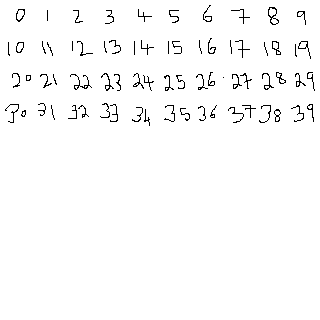 0 1 2 3 4 5 6 7 8 9
10 11 12 13 14 15 16 17 18 19
20 21 22 23 24 25 26 27 28 29
30 31 32 33 34 35 36 37 38 39